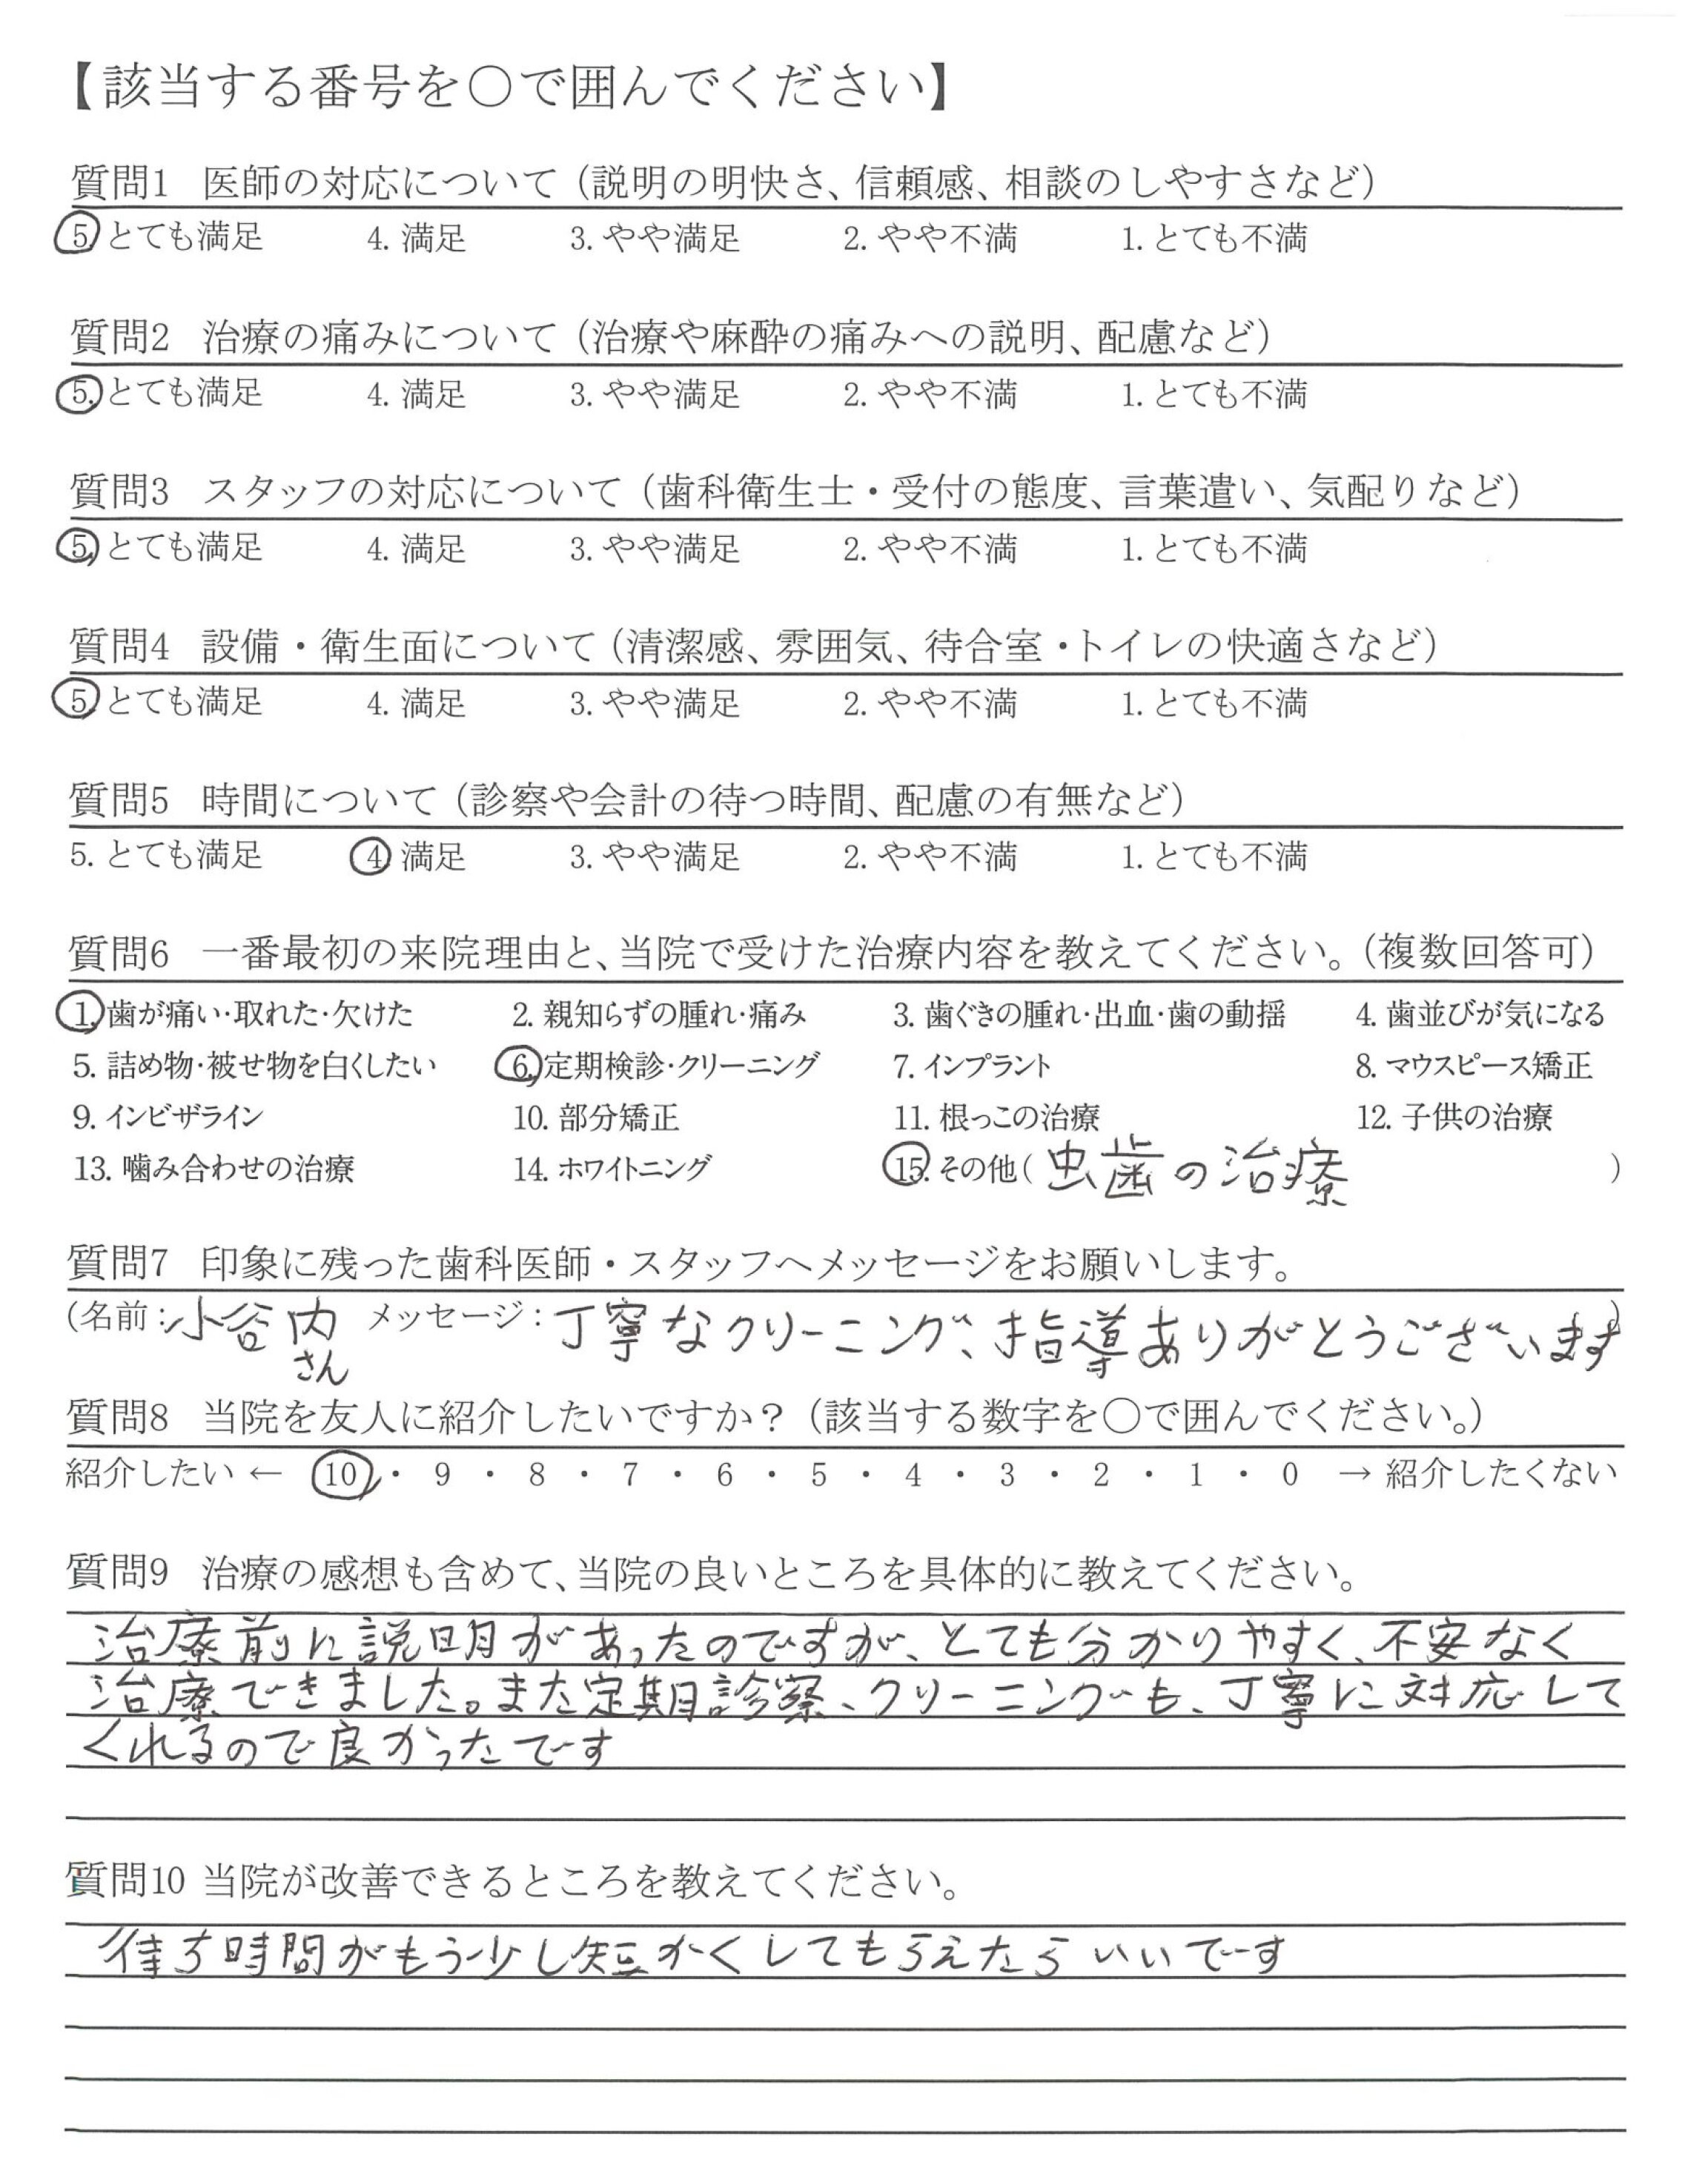 【該当する番号を○で囲んでください】
質問1 医師の対応について（説明の明快さ、信頼感、相談のしやすさなど）
5. とても満足 4. 満足 3. やや満足 2. やや不満 1. とても不満
質問2 治療の痛みについて（治療や麻酔の痛みへの説明、配慮など）
5. とても満足 4. 満足 3. やや満足 2. やや不満 1. とても不満
質問3 スタッフの対応について（歯科衛生士・受付の態度、言葉遣い、気配りなど）
5. とても満足 4. 満足 3. やや満足 2. やや不満 1. とても不満
質問4 設備・衛生面について（清潔感、雰囲気、待合室・トイレの快適さなど）
5. とても満足 4. 満足 3. やや満足 2. やや不満 1. とても不満
質問5 時間について（診察や会計の待つ時間、配慮の有無など）
5. とても満足 4. 満足 3. やや満足 2. やや不満 1. とても不満
質問6 一番最初の来院理由と、当院で受けた治療内容を教えてください。（複数回答可）
1. 歯が痛い・取れた・欠けた 2. 親知らずの腫れ・痛み 3. 歯ぐきの腫れ・出血・歯の動揺 4. 歯並びが気になる
5. 詰め物・被せ物を白くしたい 6. 定期検診・クリーニング 7. インプラント 8. マウスピース矯正
9. インビザライン 10. 部分矯正 11. 根っこの治療 12. 子供の治療
13. 噛み合わせの治療 14. ホワイトニング 15. その他（虫歯の治療）
質問7 印象に残った歯科医師・スタッフへメッセージをお願いします。
（名前：小谷内さん メッセージ：丁寧なクリーニング、指導ありがとうございます）
質問8 当院を友人に紹介したいですか？（該当する数字を○で囲んでください。）
紹介したい ← 10 ・ 9 ・ 8 ・ 7 ・ 6 ・ 5 ・ 4 ・ 3 ・ 2 ・ 1 ・ 0 → 紹介したくない
質問9 治療の感想も含めて、当院の良いところを具体的に教えてください。
治療前に説明があったのですが、とても分かりやすく、不安なく
治療できました。また定期診察、クリーニングも、丁寧に対応して
くれるので良かったです
質問10 当院が改善できるところを教えてください。
待ち時間がもう少し短かくしてもらえたらいいです